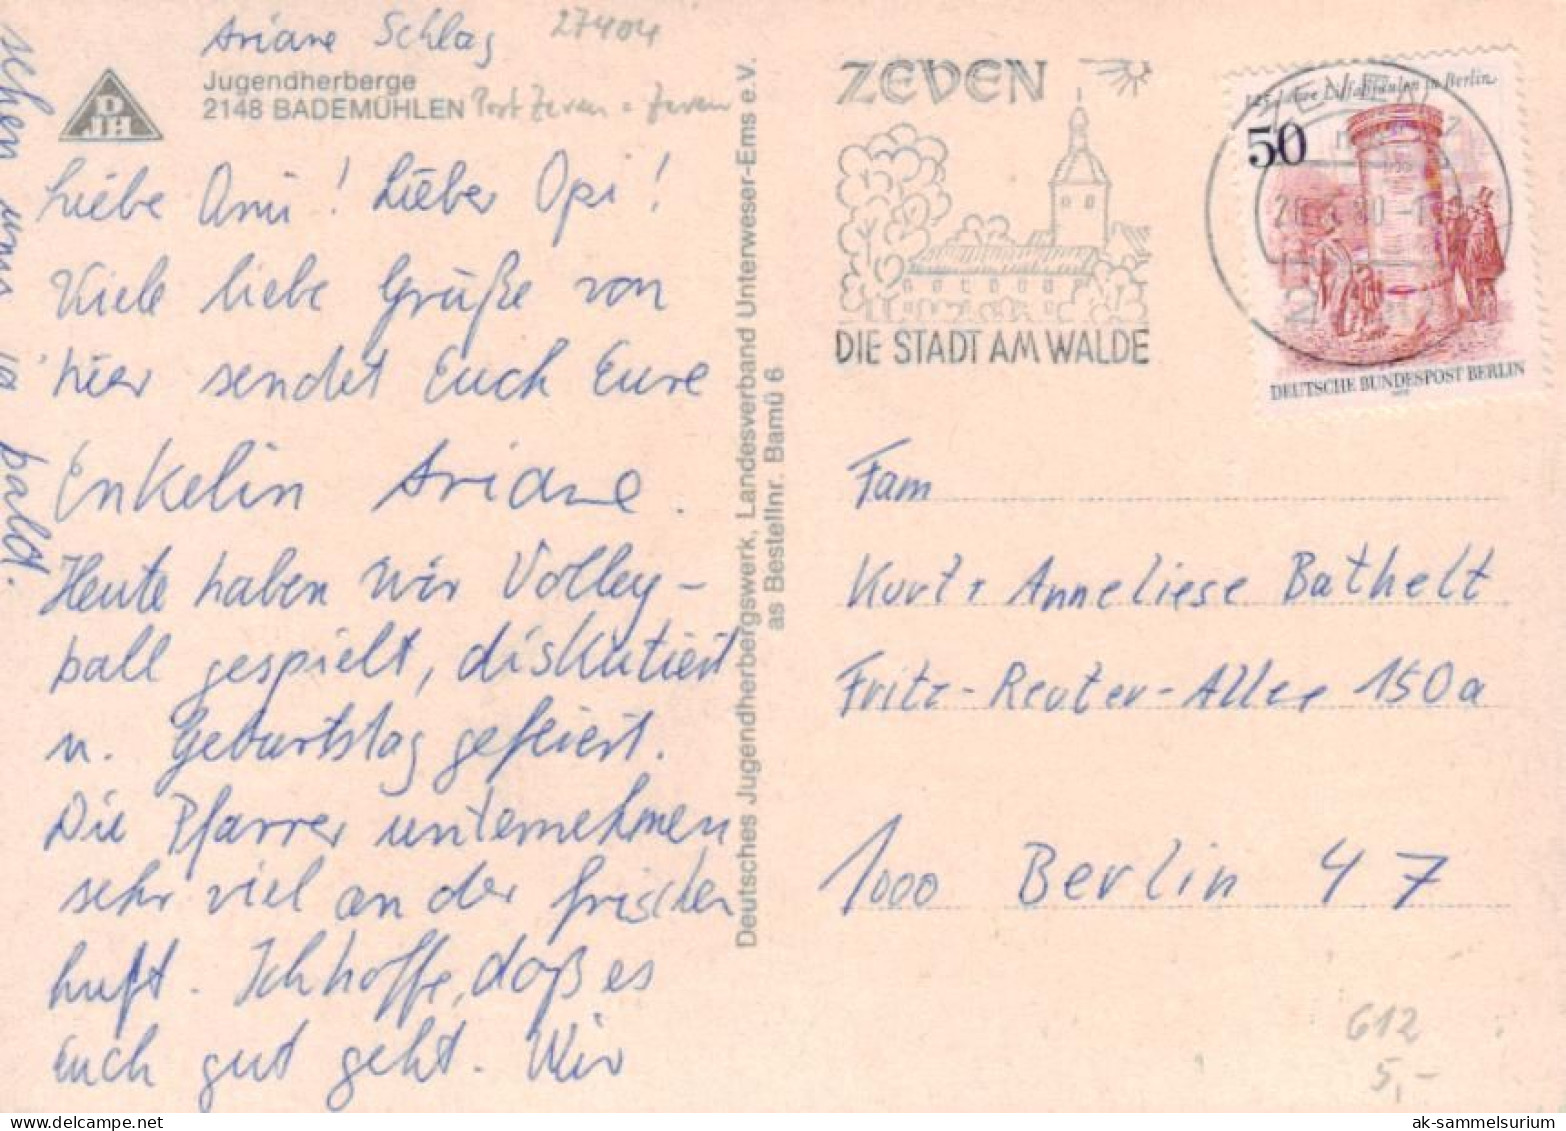 Ariane Schlag 27404
DJH
Jugendherberge
2148 BADEMÜHLEN Post Zeven = Zeven
Liebe Omi! Lieber Opi!
Viele liebe Grüße von
hier sendet Euch Eure
Enkelin Ariane.
Heute haben wir Volley-
ball gespielt, diskutiert
u. Geburtstag gefeiert.
Die Pfarrer unternehmen
sehr viel an der frischen
Luft. Ich hoffe, daß es
Euch gut geht. Wir
sehen uns ja bald.
Deutsches Jugendherbergswerk, Landesverband Unterweser-Ems e.V.
as Bestellnr. Bamü 6
ZEVEN
DIE STADT AM WALDE
125 Jahre Litfaßsäulen in Berlin
50
DEUTSCHE BUNDESPOST BERLIN
Fam
Kurt + Anneliese Bathelt
Fritz-Reuter-Allee 150a
1000 Berlin 47
612
5,-
ak-sammelsurium